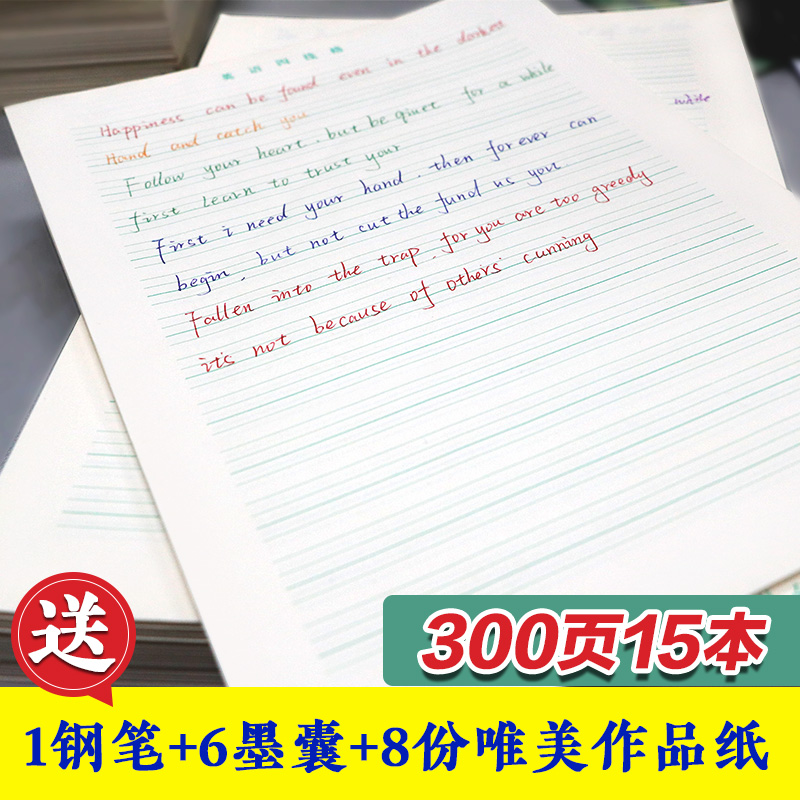 英语四线格
Happiness can be found even in the darkest
Hand and catch you
Follow your heart, but be qiuet for a while
first. Learn to trust your
First i need your hand, then forever can
begin, but not cut the fund us you.
Fallen into the trap, for you are too greedy
it's not because of others' cunning
while
300页15本
送
1钢笔+6墨囊+8份唯美作品纸